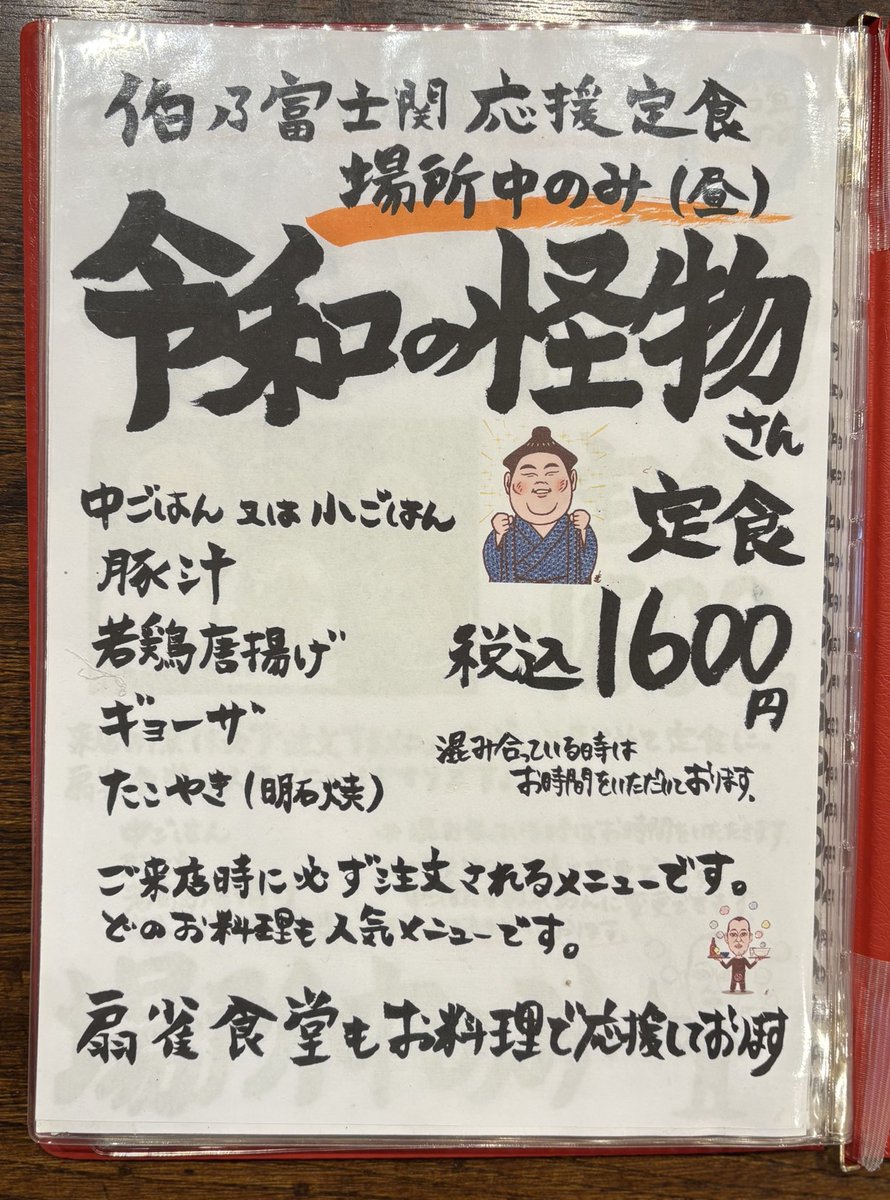 伯乃富士関応援定食
場所中のみ(昼)
令和の怪物
さん
定食
中ごはん又は小ごはん
豚汁
若鶏唐揚げ
ギョーザ
たこやき(明石焼)
税込1600円
混み合っている時は
お時間をいただいております。
ご来店時に必ず注文されるメニューです。
どのお料理も人気メニューです。
扇雀食堂もお料理で応援しております